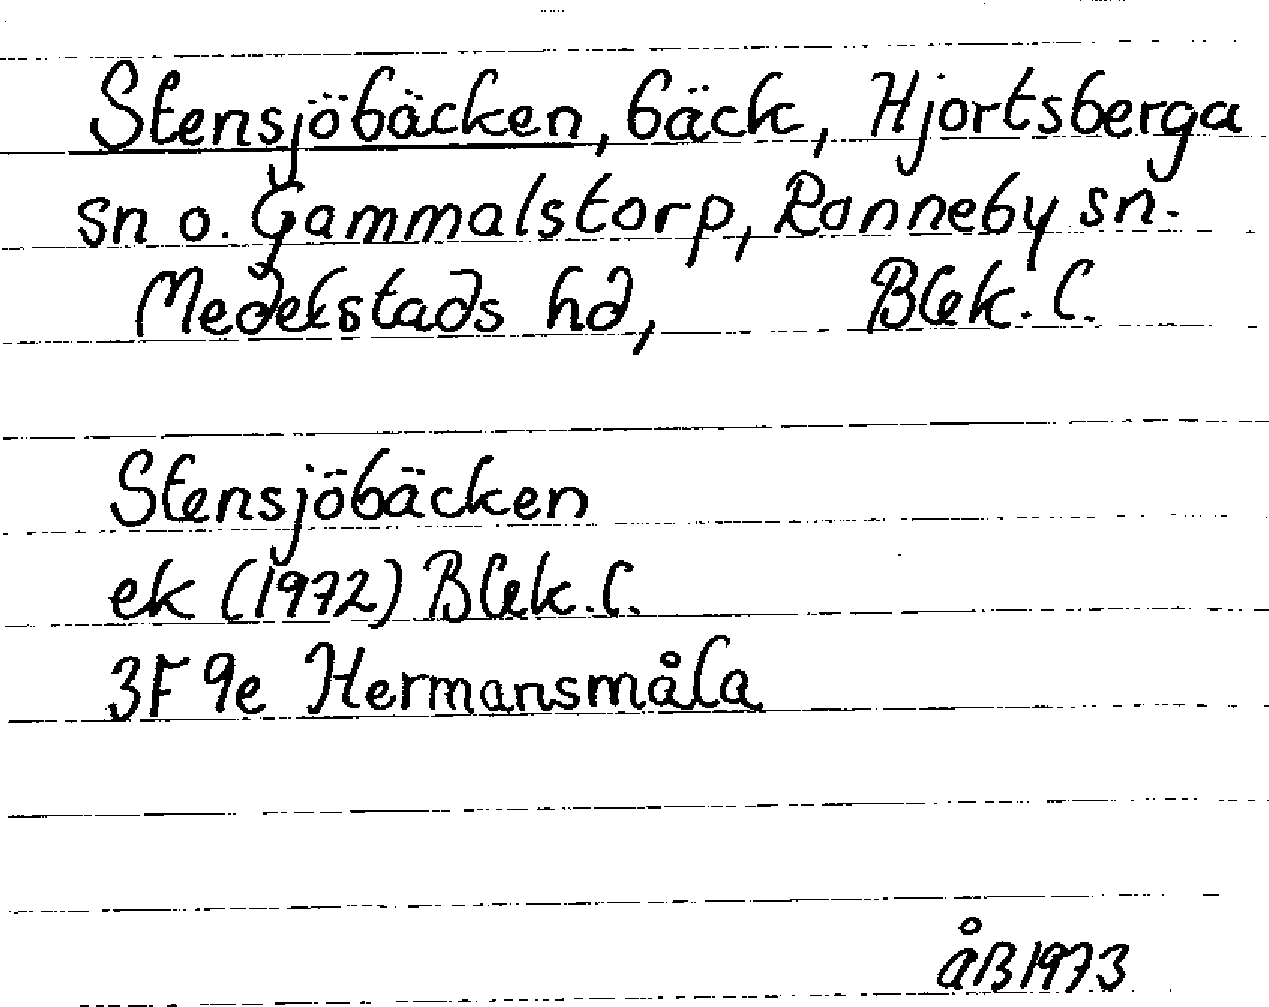 Stensjöbäcken, bäck, Hjortsberga
sn o. Gammalstorp, Ronneby sn.
Medelstads hd, Blek. l.
Stensjöbäcken
ek (1972) Blek. l.
3F 9e Hermansmåla
åB 1973